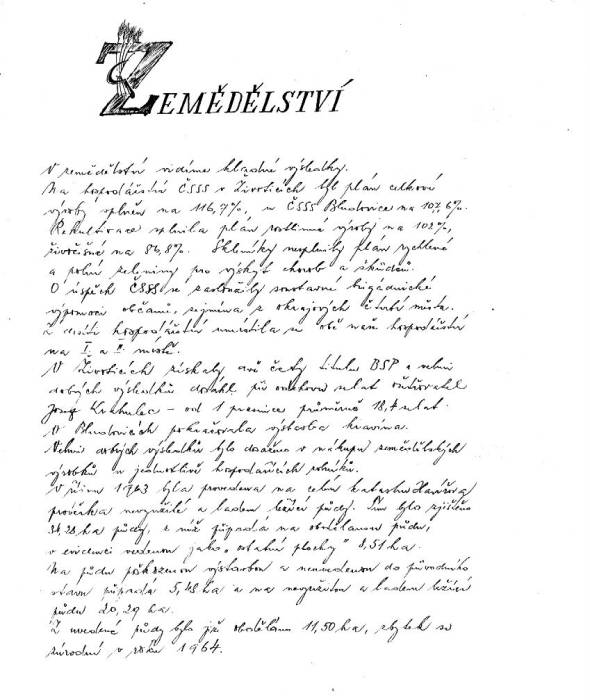 ZEMĚDĚLSTVÍ
V zemědělství vidíme kladné výsledky.
Na hospodářství ČSSS v Životicích byl plán celkové
výroby splněn na 116,7%, u ČSSS Bludovice na 107,6%.
Rekultivace splnila plán rostlinné výroby na 102%,
živočišné na 86,8%. Skleníky nesplnily plán rychlené
a polní zeleniny pro výskyt chorob a škůdců.
O úspěch ČSSS se zasloužily soustavné brigádnické
výpomoci občanů, zejména z okrajových čtvrtí města.
Z desíti hospodářství umístila se obě naše hospodářství
na I. a II. místě.
V Životicích získaly dvě čety titul BSP a velmi
dobrých výsledků dosáhl při odchovu selat ošetřovatel
Josef Krahulec – od 1 prasnice průměrně 18,7 selat.
V Bludovicích pokračovala výstavba kravína.
Velmi dobrých výsledků bylo dosaženo v nákupu zemědělských
výrobků u jednotlivě hospodařících rolníků.
V říjnu 1963 byla provedena na celém katastru Havířova
prověrka nevyužité a ladem ležící půdy. Tím bylo zjištěno
34,28 ha půdy, z níž připadá na obdělanou půdu,
v evidenci vedenou jako „ostatní plochy" 8,51 ha.
Na půdu poškozenou výstavbou a neuvedenou do původního
stavu připadá 5,48 ha a na nevyužitou a ladem ležící
půdu 20,29 ha.
Z uvedené půdy bylo již obděláno 11,50 ha, zbytek se
zúrodní v roku 1964.